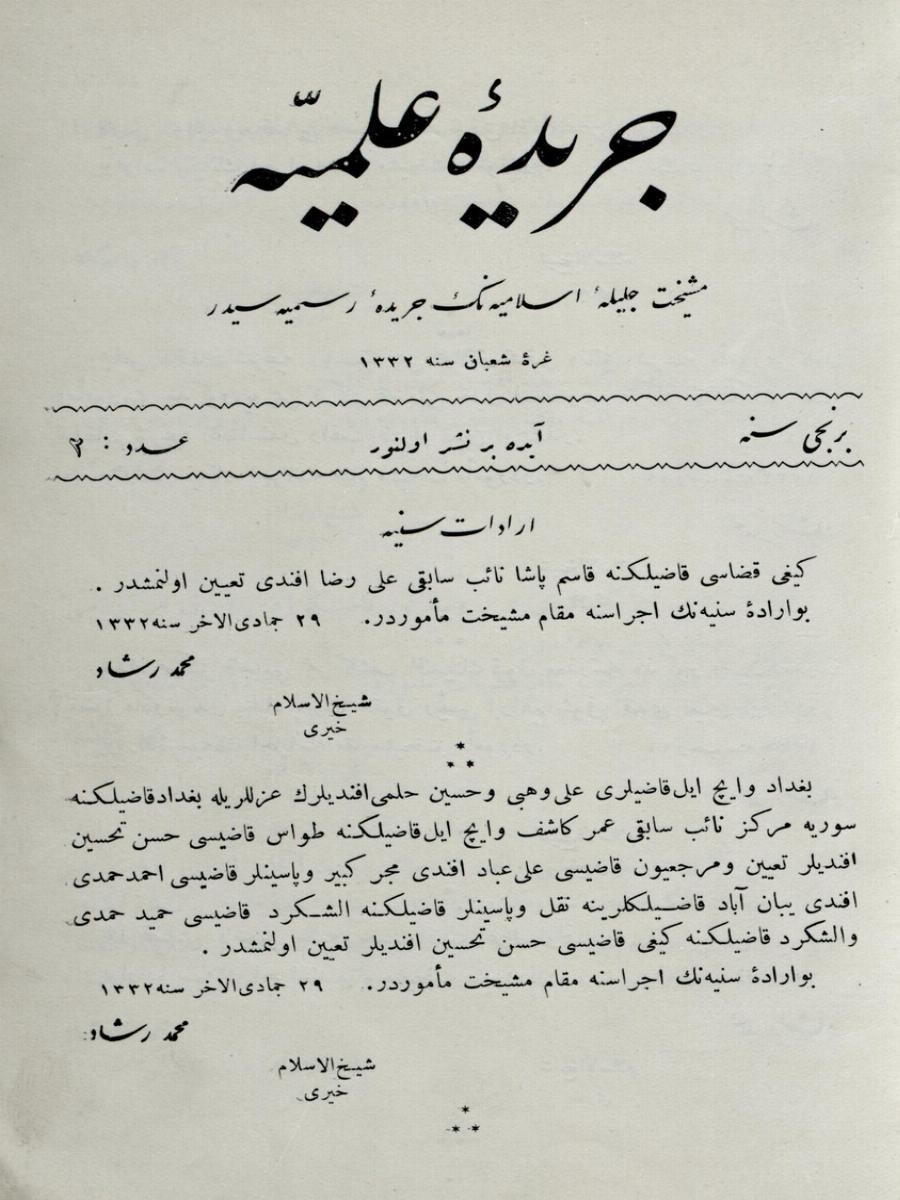 جريدهٔ علميّه
مشيخت جليلهٔ اسلاميه‌نك جريدهٔ رسميه‌سيدر
غرهٔ شعبان سنه ١٣٣٢
برنجى سنه
آيده بر نشر اولنور
عدد : ٢
ارادات سنيه
كيفى قضاسى قاضيلكنه قاسم پاشا نائب سابقى على رضا افندى تعيين اولنمشدر .
بوارادهٔ سنيه‌نك اجراسنه مقام مشيخت مأموردر. ٢٩ جمادى‌الاخر سنه ١٣٣٢
محمد رشاد
شيخ‌الاسلام
خيرى
بغداد وايچ ايل‌قاضيلرى على‌وهبى وحسين حلمى‌افنديلرك عزللريله بغدادقاضيلكنه
سوريه مركز نائب سابقى عمر كاشف وايچ ايل‌قاضيلكنه طواس قاضيسى حسن تحسين
افنديلر تعيين ومرجعيون قاضيسى على‌عباد افندى مجر كبير وپاسينلر قاضيسى احمدحمدى
افندى يبان آباد قاضيلكلرينه نقل وپاسينلر قاضيلكنه الشكرد قاضيسى حميد حمدى
والشكرد قاضيلكنه كيفى قاضيسى حسن تحسين افنديلر تعيين اولنمشدر .
بوارادهٔ سنيه‌نك اجراسنه مقام مشيخت مأموردر. ٢٩ جمادى‌الاخر سنه ١٣٣٢
محمد رشاد
شيخ‌الاسلام
خيرى